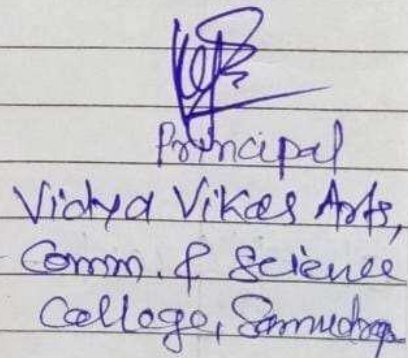 Principal
Vidya Vikas Arts,
Comm. & Science
College, Samudrapur